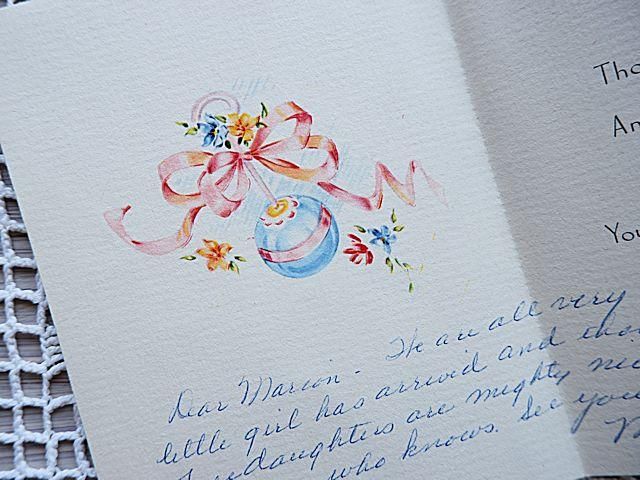 Tho
An
You
Dear Marion - We are all very
little girl has arrived and
daughters are mighty
who knows. See you